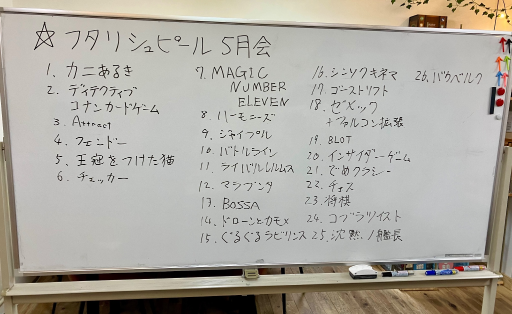 ☆ フタリシュピール 5月会
1. カニあるき
2. ディテクティブ
コナンカードゲーム
3. Attract
4. フェンドー
5. 王冠をつけた猫
6. チェッカー
7. MAGIC
NUMBER
ELEVEN
8. ハーモニーズ
9. ジャイプル
10. バトルライン
11. ライバルレルムス
12. マラブンタ
13. BOSSA
14. ドローンとカモメ
15. ぐるぐるラビリンス
16. シンソクキネマ
17. ゴーストリフト
18. ゼメック
+ヴァルコン拡張
19. BLOT
20. インサイダーゲーム
21. でめクラシー
22. チェス
23. 将棋
24. コブラツイスト
25. 沈黙ノ艦長
26. バウベルク